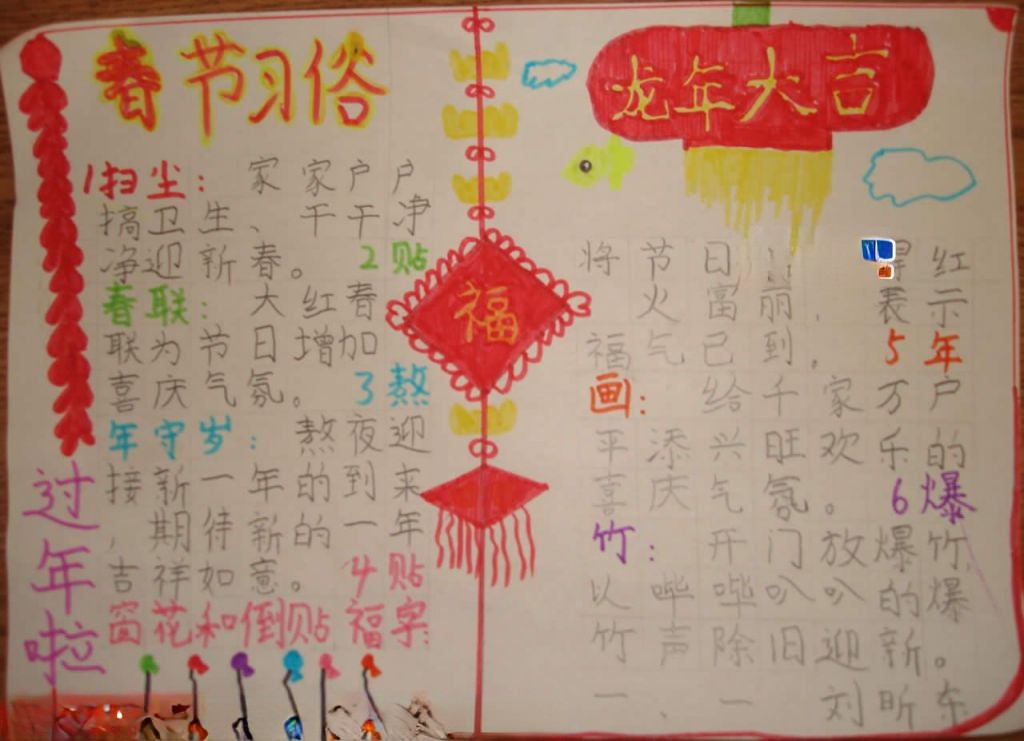 春节习俗
1扫尘：家家户户
搞卫生、干干净
净迎新春。2贴
春联：大红春
联为节日增加
喜庆气氛。3熬
年守岁：熬夜迎
接新一年的到来
，期待新的一年
吉祥如意。4贴
窗花和倒贴福字：
过年啦
福
龙年大吉
将节日 得红
火富丽，表示
福气已到。5年
画：给千家万户
平添兴旺欢乐的
喜庆气氛。6爆
竹：开门放爆竹
以哔哔叭叭的爆
竹声除旧迎新。
一、一 刘昕东